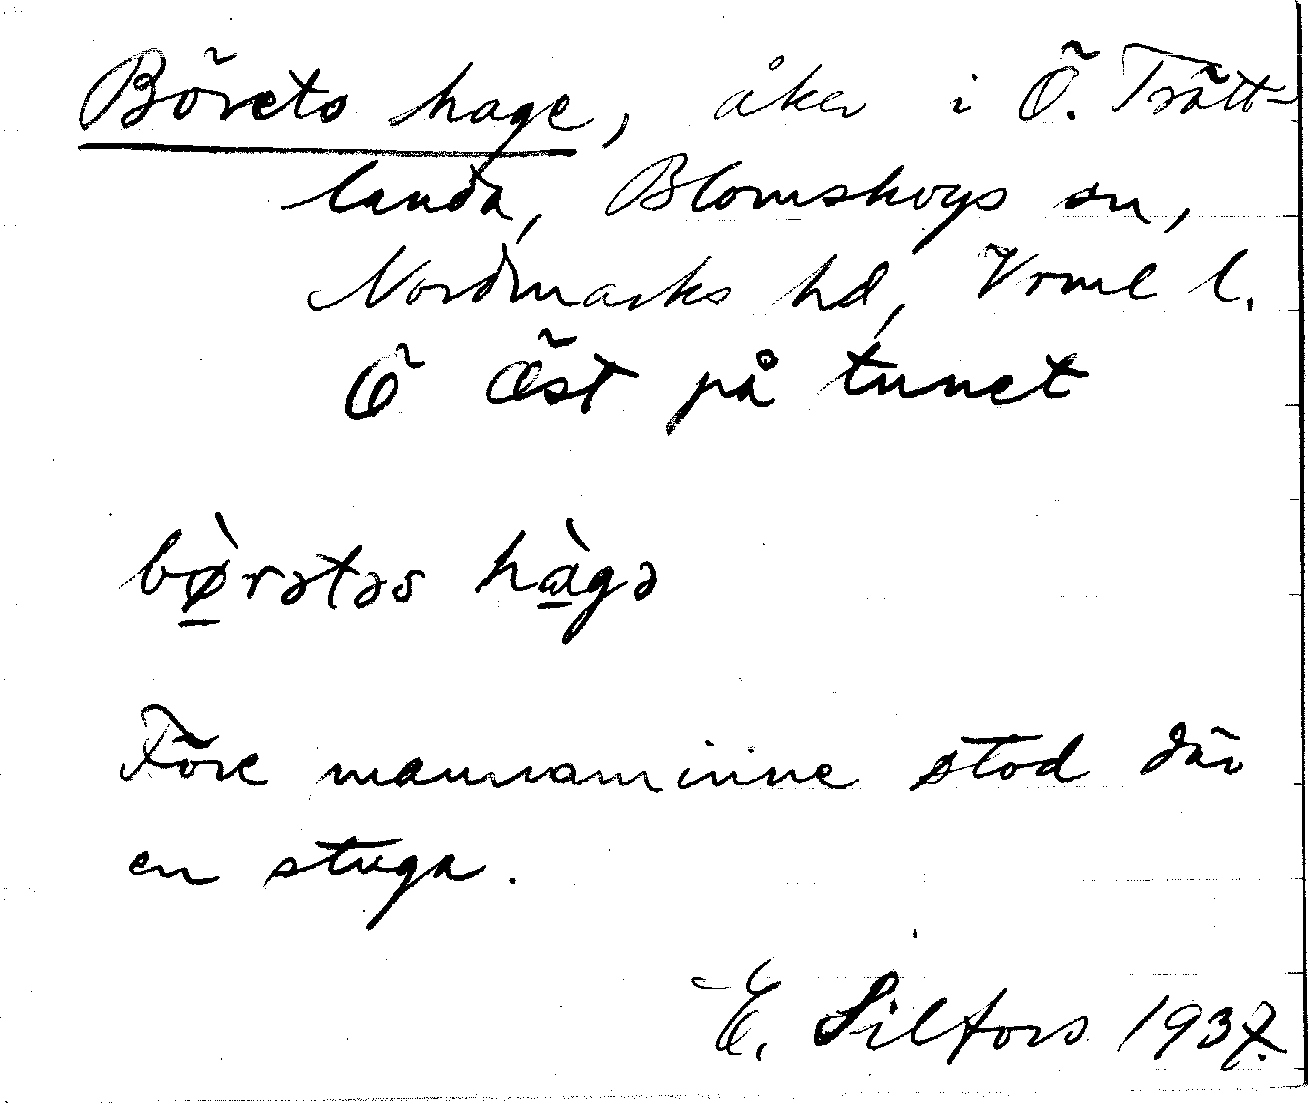 Börets hage, åker i Ö. Trätt-
landa, Blomskogs sn,
Nordmarks hd, Vrml l.
Ö Öst på tunet
bø̀rətəs hàgə
Före mannaminne stod där
en stuga.
E. Silfors 1937.